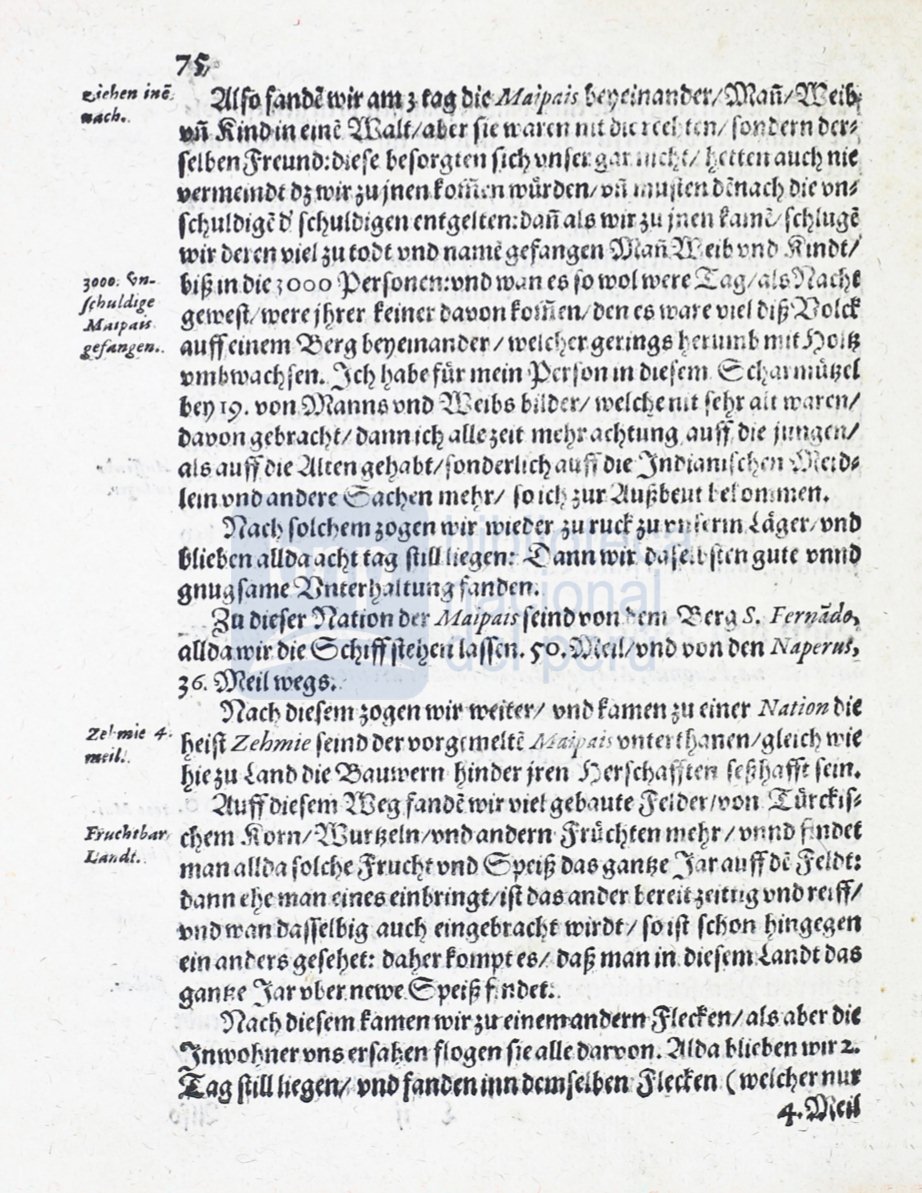 75.
ziehen inẽ
nach.
Also fandẽ wir am 3 tag die Maipais beyeinander/Mañ/Weib/
vñ Kind in einẽ Walt/aber sie waren nit die rechten/ sondern der⸗
selben Freund: diese besorgten sich vnser gar nicht/ hetten auch nie
vermeindt dz wir zu jnen kom̃en würden/ vñ musten dẽnach die vn⸗
schuldigẽ d' schuldigen entgelten: dañ als wir zu jnen kamẽ/ schlugẽ
wir deren viel zu todt vnd namẽ gefangen Mañ Weib vnd Kindt/
biß in die 3000 Personen: vnd wan es so wol were Tag/als Nacht
gewest/ were jhrer keiner davon kom̃en/ den es ware viel diß Volck
auff einem Berg beyeinander / welcher gerings herumb mit Holtz
vmbwachsen. Ich habe für mein Person in diesem Scharmützel
bey 19. von Manns vnd Weibs bilder/ welche nit sehr alt waren/
davon gebracht/ dann ich allezeit mehr achtung auff die jungen/
als auff die Alten gehabt/ sonderlich auff die Indianischen Meid⸗
lein vnd andere Sachen mehr/ so ich zur Außbeut bekommen.
3000. Vn-
schuldige
Maipais
gefangen..
Nach solchem zogen wir wieder zu ruck zu vnserm Läger/ vnd
blieben allda acht tag still liegen: Dann wir daselbsten gute vnnd
gnugsame Vnterhaltung fanden.
Zu dieser Nation der Maipais seind von dem Berg S. Fernãdo,
allda wir die Schiff stehen lassen. 50. Meil/ vnd von den Naperus,
36. Meil wegs.
Nach diesem zogen wir weiter/ vnd kamen zu einer Nation die
heist Zehmie seind der vorgemeltẽ Maipais vnterthanen/ gleich wie
hie zu Land die Bauwern hinder jren Herschafften seßhafft sein.
Zehmie 4.
meil.
Auff diesem Weg fandẽ wir viel gebaute Felder/von Türckis⸗
chem Korn/ Wurtzeln/ vnd andern Früchten mehr / vnnd findet
man allda solche Frucht vnd Speiß das gantze Jar auff dẽ Feldt:
dann ehe man eines einbringt/ ist das ander bereit zeitig vnd reiff/
vnd wan dasselbig auch eingebracht wirdt/ so ist schon hingegen
ein anders gesehet: daher kompt es/ daß man in diesem Landt das
gantze Jar vber newe Speiß findet.
Fruchtbar
Landt.
Nach diesem kamen wir zu einem andern Flecken/ als aber die
Inwohner vns ersahen flogen sie alle darvon. Alda blieben wir 2.
Tag still liegen/ vnd fanden inn demselben Flecken (welcher nur
4. Meil
biblioteca
nacional
del perú